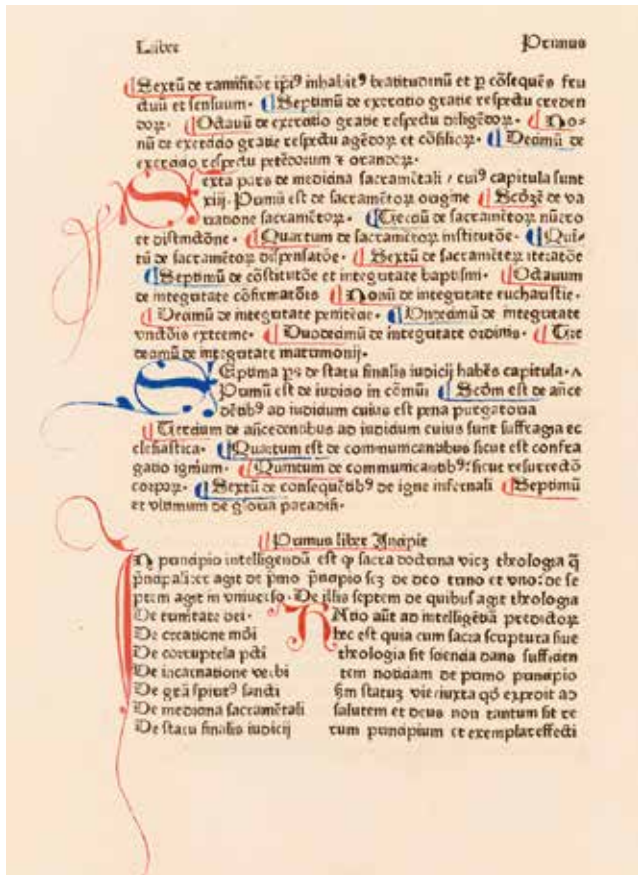 Liber Primus
Sextū de ramificatōe ipiꝰ inhabitꝰ beatitudinū et p cōsequēs fru
ctuū et sensuum. Septimū de exercitio gratie respectu creden
doꝝ. Octauū de exercitio gratie respectu diligēdoꝝ. No-
nū de exercitio gratie respectu agēdoꝝ et cōsilioꝝ. Decimū de
exercitio respectu petēdorum ⁊ orandoꝝ.
Sexta pars de medicina sacramētali / cuiꝰ capitula sunt
xiij. Primū est de sacramētoꝝ origine Scdꝫ de va
riatione sacramētoꝝ. Terciū de sacramētoꝝ nūero
et distinctōne. Quartum de sacramētoꝝ institutōe. Quī-
tū de sacramētoꝝ dispensatōe. Sextū de sacramētoꝝ iteratōe
Septimū de cōstitutōe et integritate baptismi. Octauum
de integritate cōfirmatōis Nonū de integritate eucharistie.
Decimū de integritate penitēcie. Undecimū de integritate
vnctōis extreme. Duodecimū de integritate ordinis. Tre
decimū de integritate matrimonij.
SEptima ps de statu finalis iudicij habēs capitula.
Primū est de iudicio in cōmūi Scdm est de añce
dētibꝰ ad iudicium cuius est pena purgatoria
Tercium de añcedentibus ad iudicium cuius sunt suffragia ec
clesiastica. Quartum est de communicantibus sicut est confla
gratio ignium. Quintum de communicātibꝰ: sicut resurrectō
corpoꝝ. Sextū de consequētibꝰ de igne infernali Septimū
et vltimum de gloria paradisi.
Primus liber Incipit
In principio intelligendū est ꝙ sacra doctrina vicꝫ theologia q̄
p̄ncipaliter agit de p̄mo p̄ncipio scꝫ de deo trino et vno: de se
ptem agit in vniuerso. De illis septem de quibus agit theologia
De trinitate dei. RAtio aūt ad intelligēdū predictoꝝ
De creatione mūdi hec est quia cum sacra scriptura siue
De corruptela pcti theologia sit sciencia dans sufficien
De incarnatione verbi tem noticiam de primo principio
De grā spiritꝰ sancti scdm statuꝫ vie iuxta qd expedit ad
De medicina sacramētali salutem et deus non tantum sit re
De statu finalis iudicij rum principium et exemplar effecti